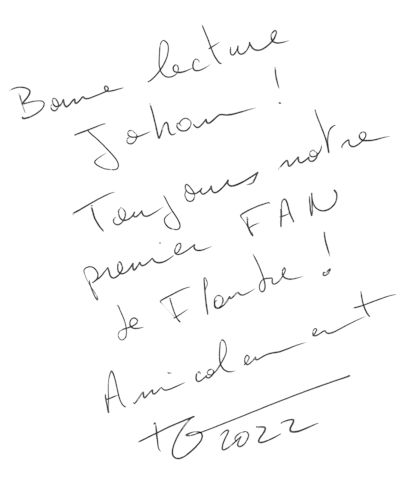 Bonne lecture
Johan !
Toujours notre
premier FAN
de Flandre !
Amicalement
TG 2022